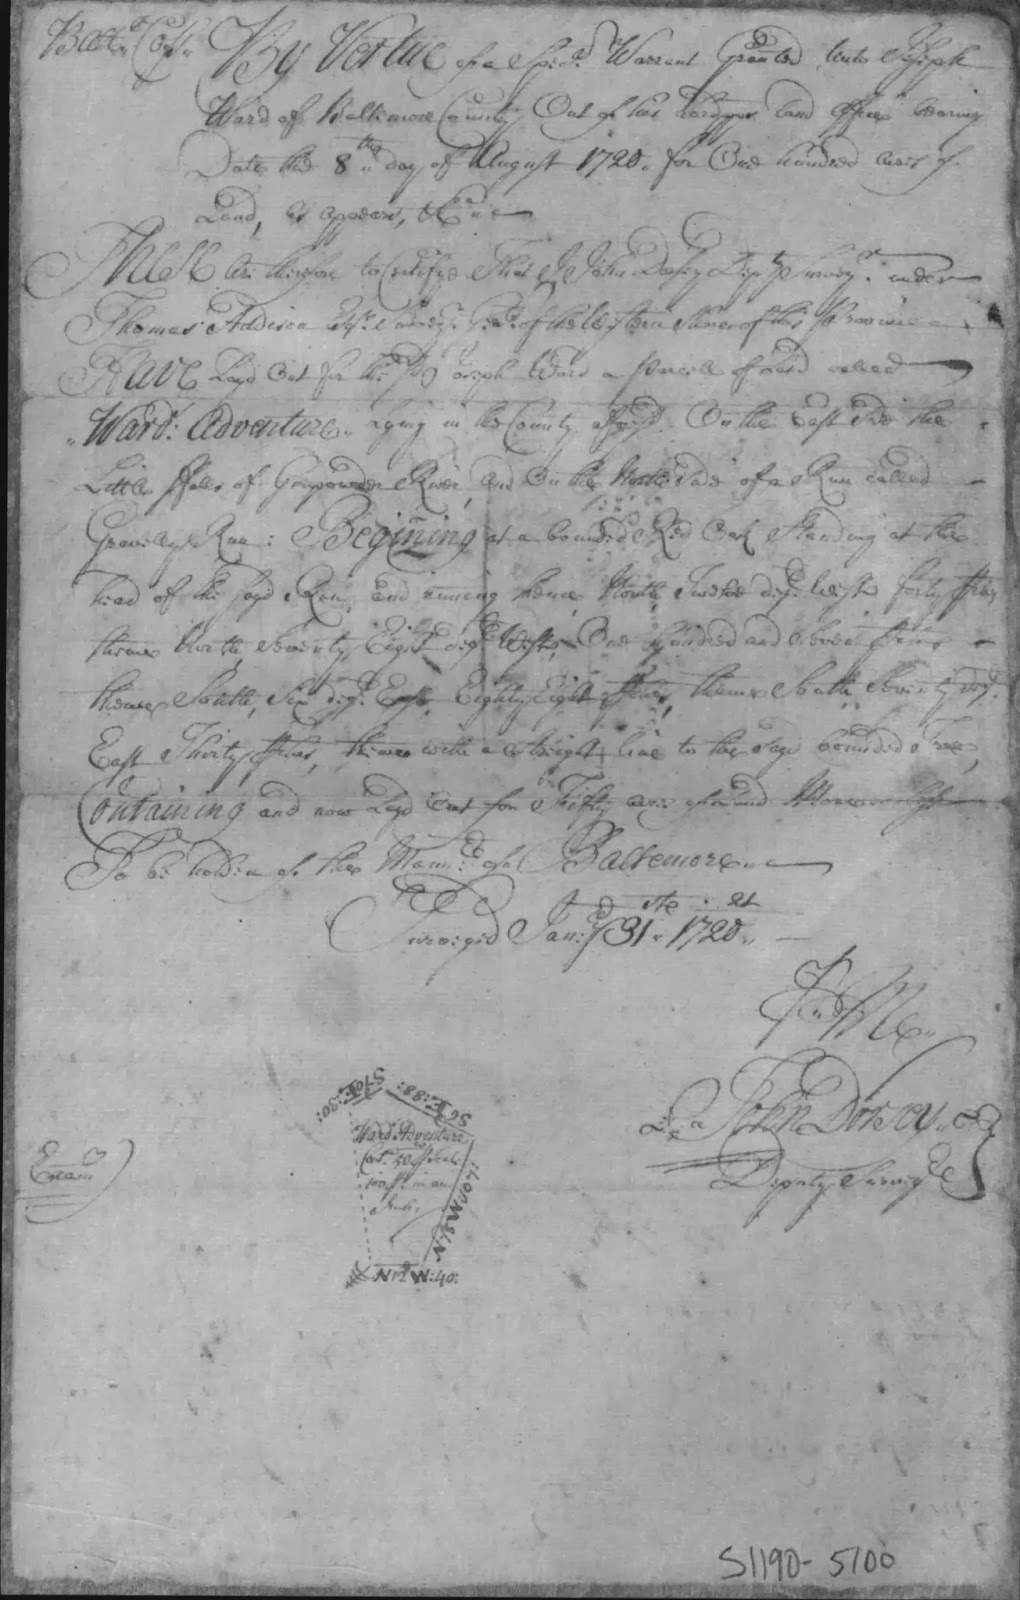 Balto: Coty: By Vertue of a Speciall Warrant Granted Unto Joseph
Ward of Baltimore County Out of his Lordpps land Office bearing
Date the 8th day of August 1720. for One hundred acres of
Land, as appears, &c
These Are therefore to Certifye That I John Dorsey Depty Surveyr. under
Thomas Addison Esqr. Surveyr. of the Western Shore of this Province
Have Layd Out for the Sd Joseph Ward a parcell of Land called
"Wards: Adventure" Lying in the County afsd. On the East Side the
Little ffalls of Gunpowder River, and On the North Side of a Run called
Gravilly Run: Begining at a bounded Red Oak Standing at the
head of the sayd Run, and runing thence North Twelve degs West forty ffes
thence North Seventy Eight degs West, One hundred and Seven ffes
thence South, Six degs. East, Eighty Eight ffes, thence South Seventy degs.
East Thirty ffes, thence with a Streight line to the Sayd bounded Tree,
Containing and now Layd Out for Fifty acres of Land More or less
To be holden of the Mannr: of Baltemore
Surveyed Jan:ry 31st 1720
John Dorsey
Deputy Survey
Exam
S70E:30:
S6E:88:
Wards Adventure
Cont. 50
in an
Inch.
N78W:107:
N12W:40:
S1190-5100